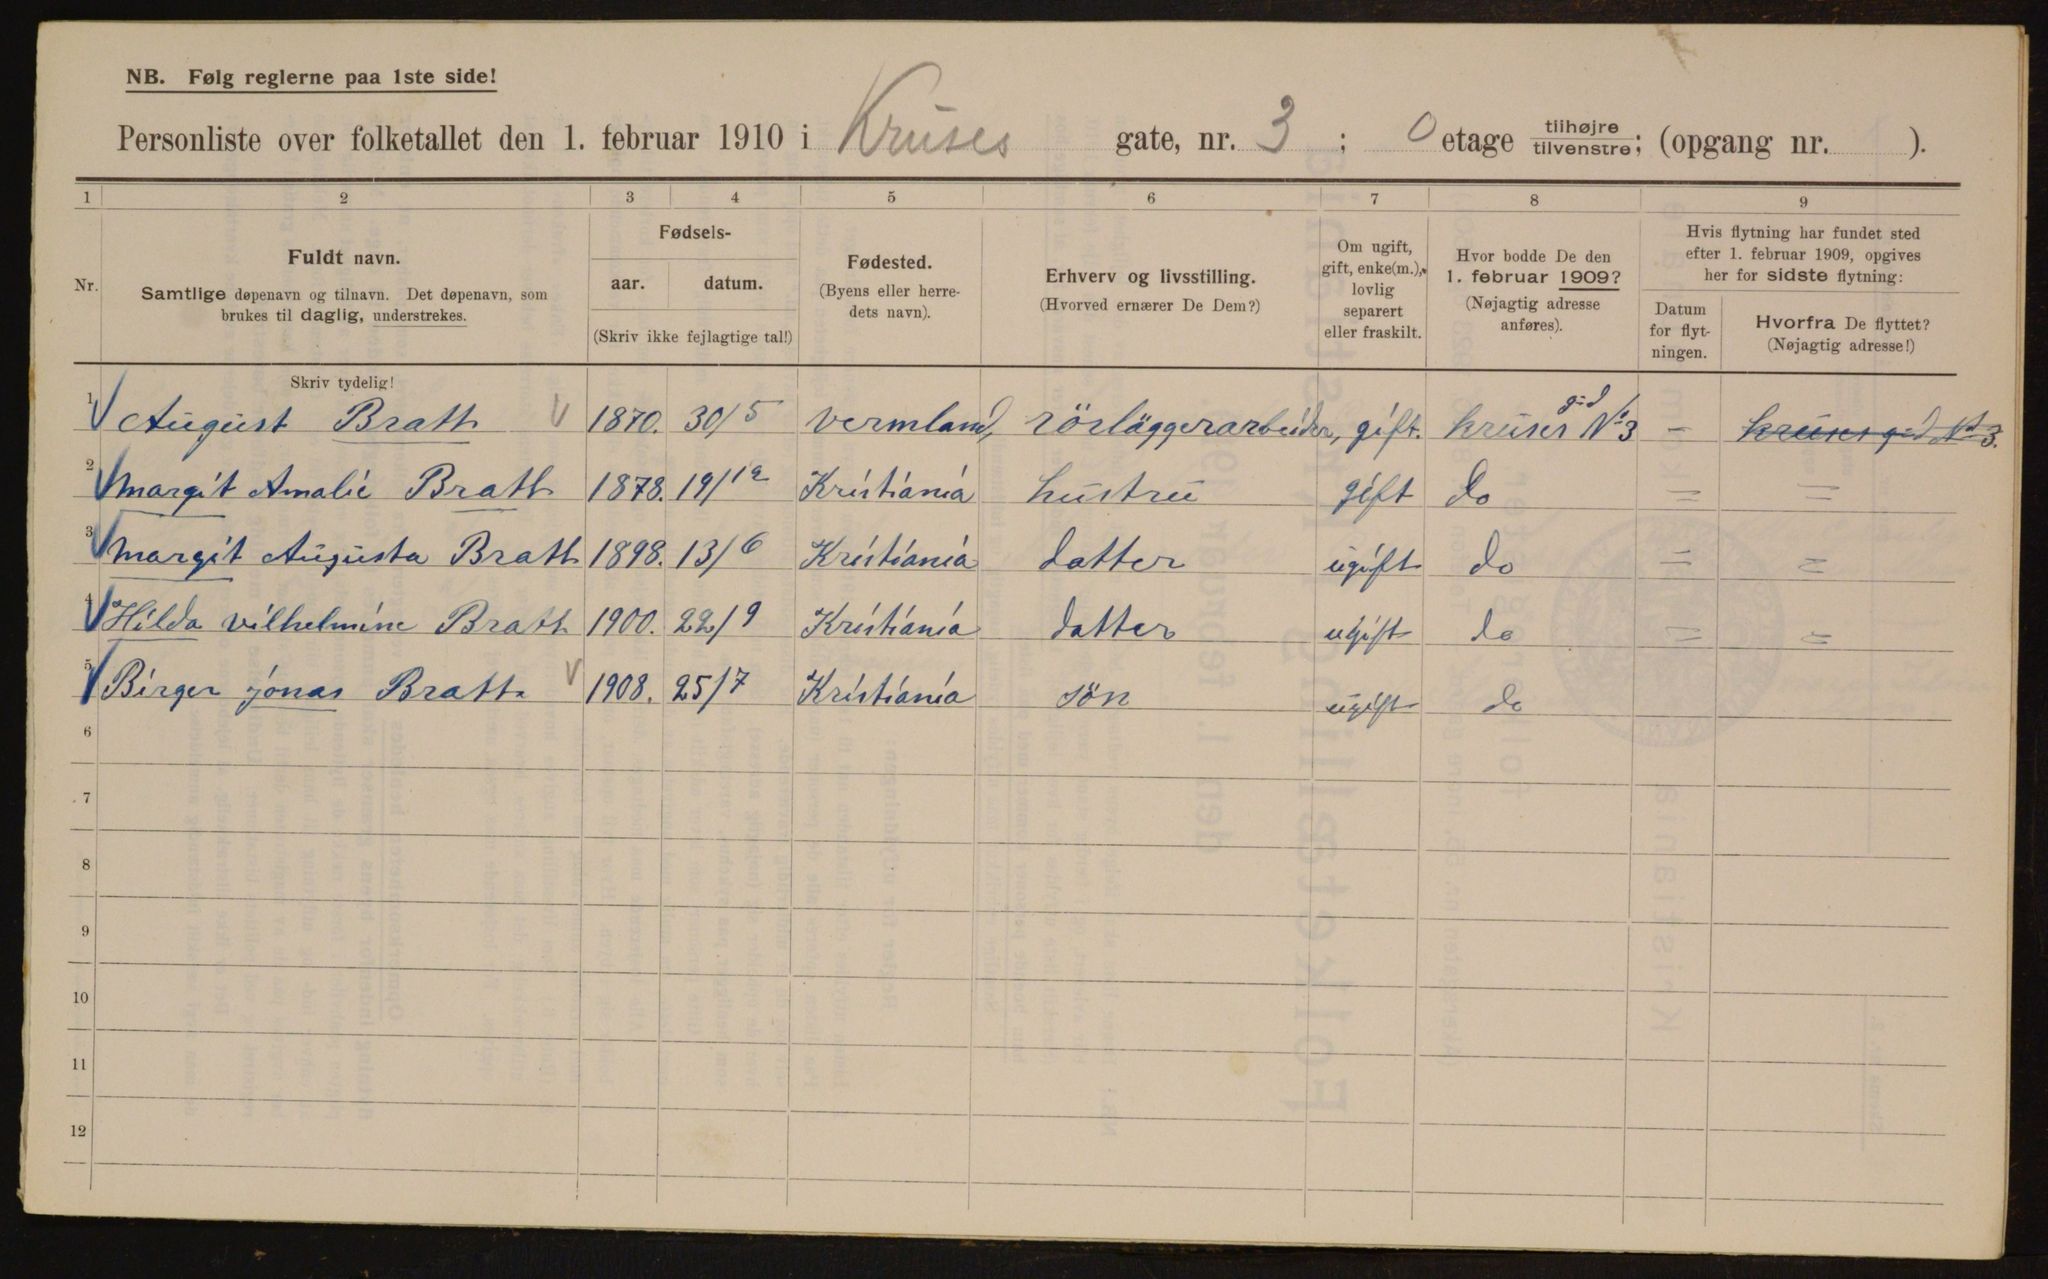 NB. Følg reglerne paa 1ste side!
Personliste over folketallet den 1. februar 1910 i Kruses gate, nr. 3 ; 0 etage tilhøjre tilvenstre; (opgang nr. ).
1 2 3 4 5 6 7 8 9
Nr.
Fuldt navn.
Samtlige døpenavn og tilnavn. Det døpenavn, som
brukes til daglig, understrekes.
Fødsels-
aar. datum.
(Skriv ikke fejlagtige tal!)
Fødested.
(Byens eller herre-
dets navn).
Erhverv og livsstilling.
(Hvorved ernærer De Dem?)
Om ugift,
gift, enke(m.),
lovlig
separert
eller fraskilt.
Hvor bodde De den
1. februar 1909?
(Nøjagtig adresse
anføres).
Hvis flytning har fundet sted
efter 1. februar 1909, opgives
her for sidste flytning:
Datum
for flyt-
ningen.
Hvorfra De flyttet?
(Nøjagtig adresse!)
Skriv tydelig!
1 August Bratt 1870. 30/5 Vermland, rörläggerarbeider, gift. Kruses gd No 3 – Kruses gd No 3.
2 Margit Amalie Bratt 1878. 19/12 Kristiania hustru gift do " "
3 Margit Augusta Bratt 1898. 13/6 Kristiania datter ugift do " "
4 Hilda Vilhelmine Bratt 1900. 22/9 Kristiania datter ugift do " "
5 Birger Jonas Bratt 1908. 25/7 Kristiania sön ugift do
6
7
8
9
10
11
12